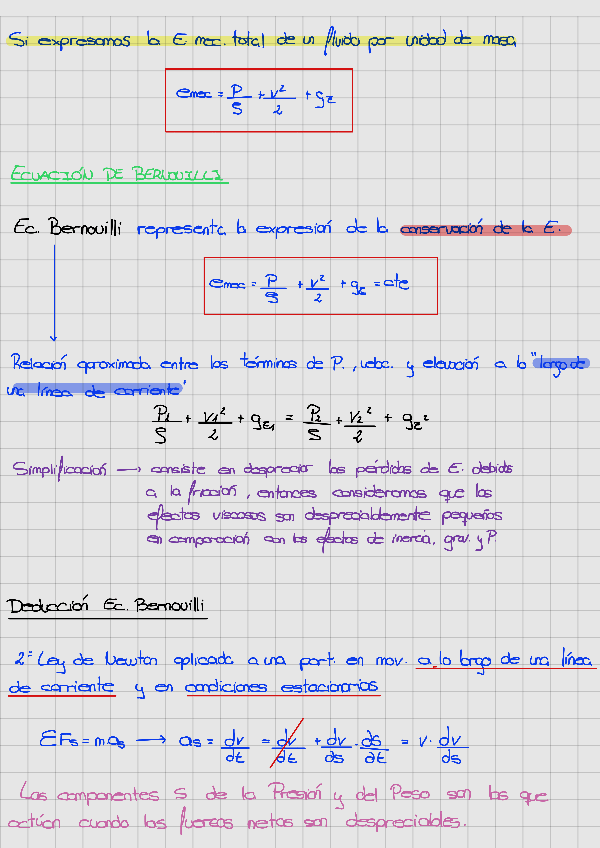 Si expresamos la E. mec. total de un fluido por unidad de masa
emec = P/ρ + v²/2 + gz
ECUACIÓN DE BERNOUILLI
Ec. Bernouilli representa la expresión de la conservación de la E.
emec = P/ρ + v²/2 + gz = cte
Relación aproximada entre los términos de P., veloc. y elevación a lo "largo de
una línea de corriente"
P₁/ρ + v₁²/2 + gz₁ = P₂/ρ + v₂²/2 + gz²
Simplificación → consiste en despreciar las pérdidas de E. debida
a la fricción, entonces consideramos que los
efectos viscosos son despreciablemente pequeños
en comparación con los efectos de inercia, grav. y P.
Deducción Ec. Bernouilli
2ª Ley de Newton aplicada a una part. en mov. a lo largo de una línea
de corriente y en condiciones estacionarias
ΣFs = mas → as = dv/dt = dv/dt + dv/ds · ds/dt = v · dv/ds
Las componentes S de la Presión y del Peso son las que
actúan cuando las fuerzas netas son despreciables.